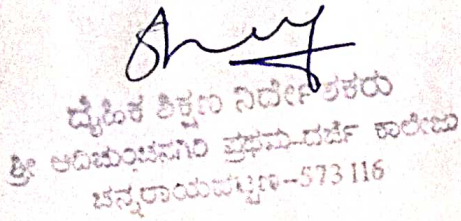 ದೈಹಿಕ ಶಿಕ್ಷಣ ನಿರ್ದೇಶಕರು
ಶ್ರೀ ಆದಿಚುಂಚನಗಿರಿ ಪ್ರಥಮ-ದರ್ಜೆ ಕಾಲೇಜು
ಚನ್ನರಾಯಪಟ್ಟಣ--573 116